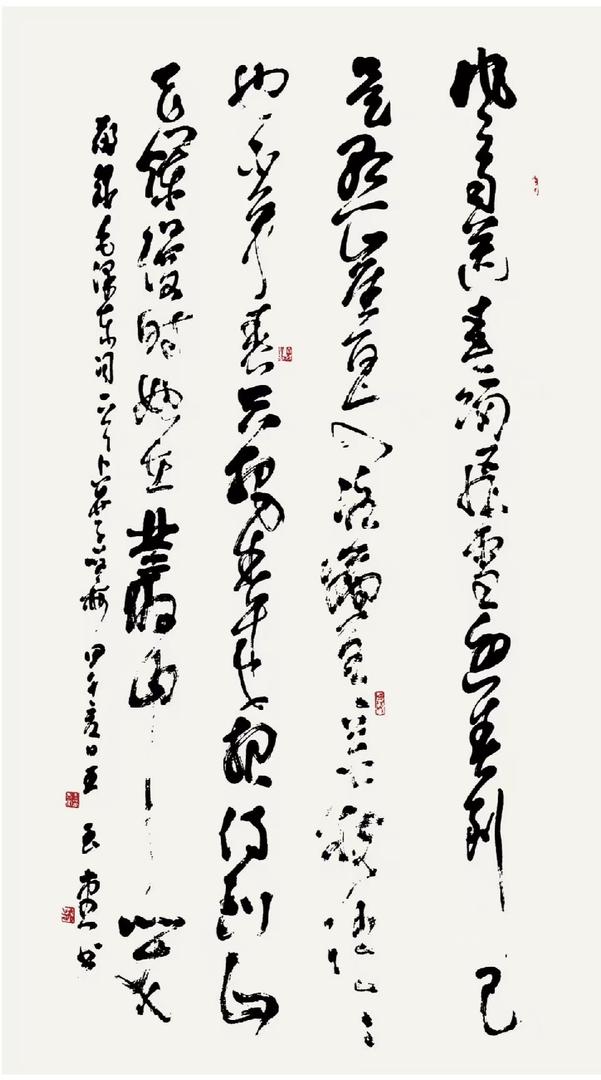 风雨送春归飞雪迎春到已
是悬崖百丈冰犹有花枝俏俏
也不争春只把春来报待到山
花烂漫时她在丛中笑
录毛泽东词一首卜算子咏梅甲午夏日书